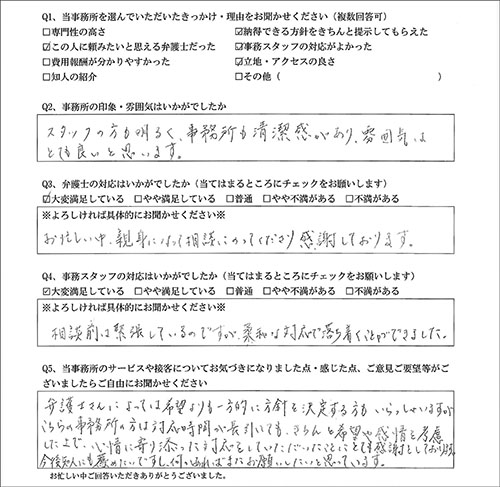 Q1、当事務所を選んでいただいたきっかけ・理由をお聞かせください（複数回答可）
□専門性の高さ ☑納得できる方針をきちんと提示してもらえた
☑この人に頼みたいと思える弁護士だった ☑事務スタッフの対応がよかった
□費用報酬が分かりやすかった ☑立地・アクセスの良さ
□知人の紹介 □その他（ ）
Q2、事務所の印象・雰囲気はいかがでしたか
スタッフの方も明るく、事務所も清潔感があり、雰囲気は
とても良いと思います。
Q3、弁護士の対応はいかがでしたか（当てはまるところにチェックをお願いします）
☑大変満足している □やや満足している □普通 □やや不満がある □不満がある
※よろしければ具体的にお聞かせください※
お忙しい中、親身になって相談にのってくださり感謝しております。
Q4、事務スタッフの対応はいかがでしたか（当てはまるところにチェックをお願いします）
☑大変満足している □やや満足している □普通 □やや不満がある □不満がある
※よろしければ具体的にお聞かせください※
相談前は緊張しているのですが、柔和な対応で落ち着くことができました。
Q5、当事務所のサービスや接客についてお気づきになりました点・感じた点、ご意見ご要望等がご
ざいましたらご自由にお聞かせください
弁護士さんによっては希望よりも一方的に方針を決定する方もいらっしゃいますが
こちらの事務所の方は対応時間が長引いても、きちんと希望や感情を考慮
した上で、心情に寄り添った対応をしていただいたことにとても感謝しております。
今後知人にも薦めたいですし、何かあればまたお願いしたいと思っています。
お忙しい中ご回答いただきありがとうございました。